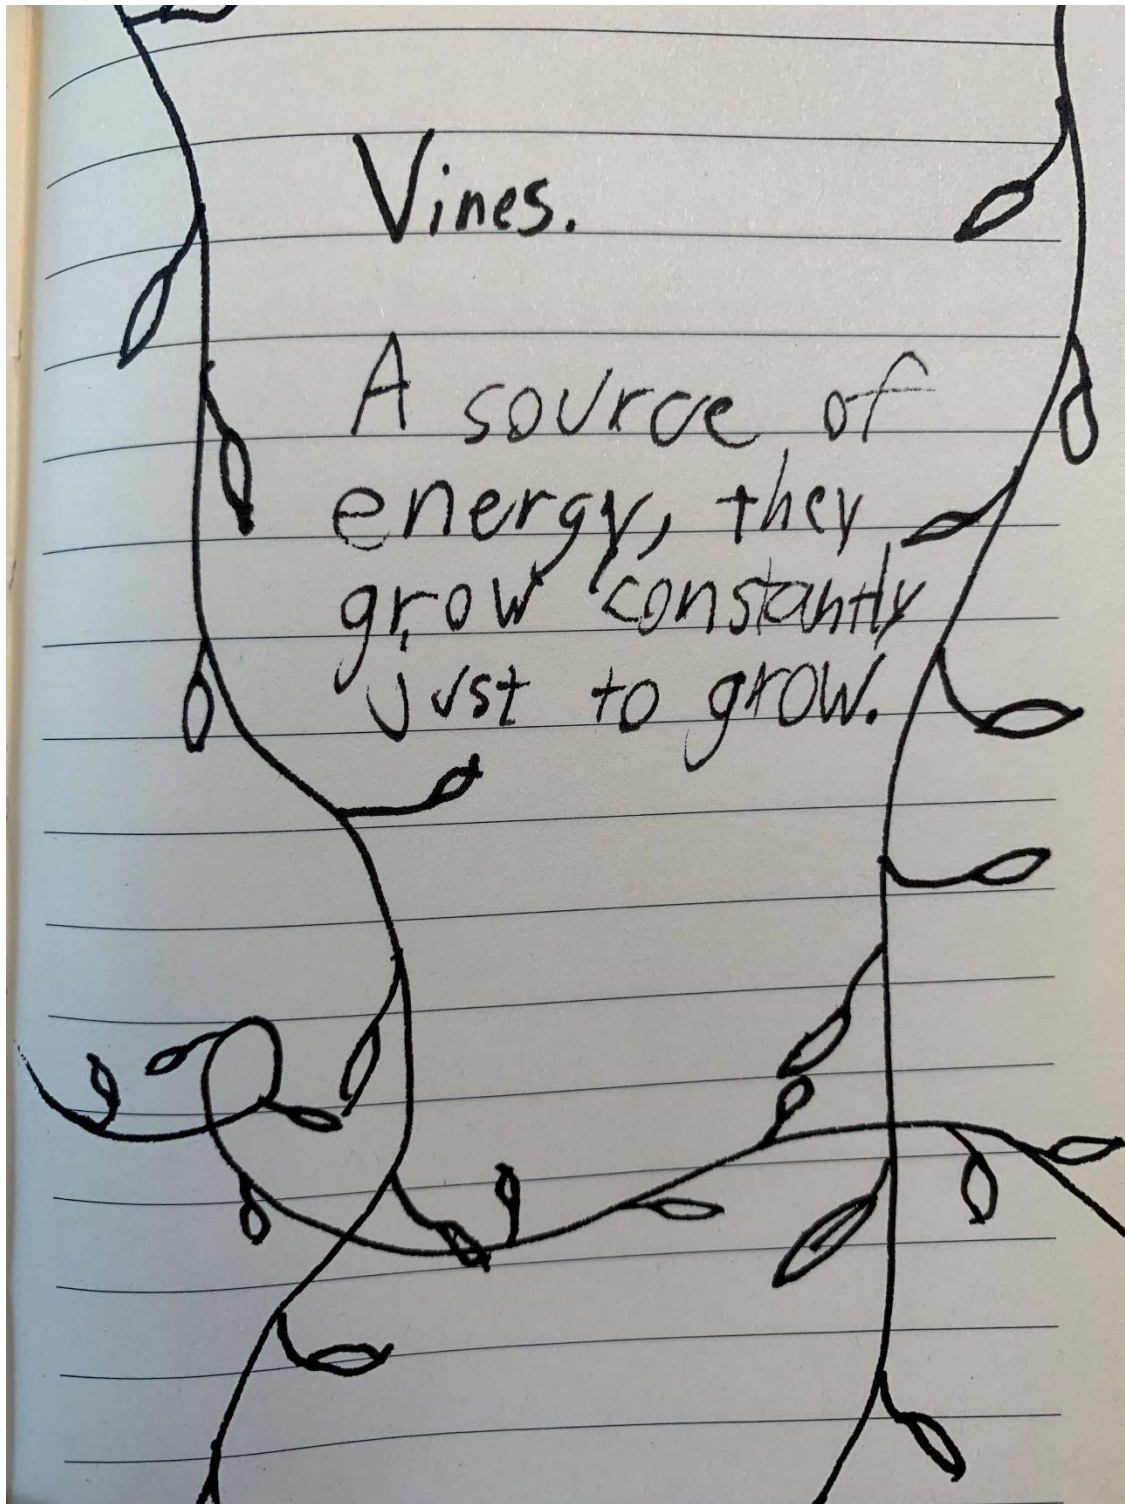 Vines.
A source of
energy, they
grow constantly
just to grow.